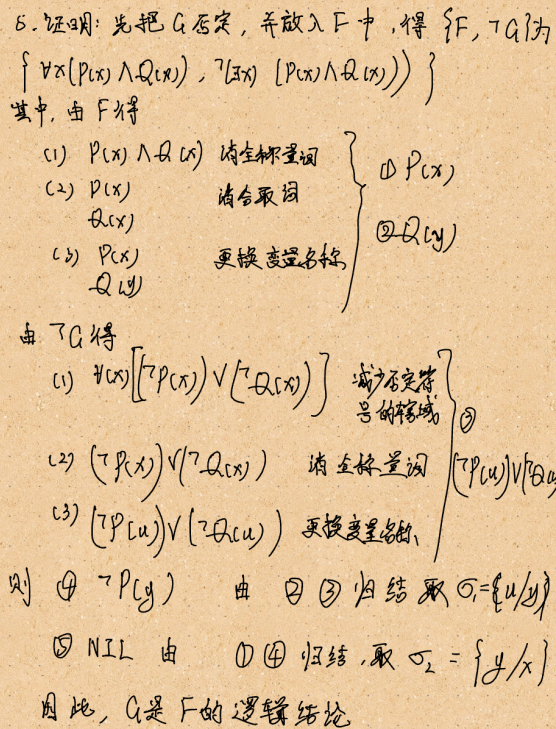 5. 证明: 先把 G 否定, 并放入 F 中, 得 {F, ¬G} 为
{ ∀x(P(x)∧Q(x)), ¬(∃x) (P(x)∧Q(x)) }
其中, 由 F 得
(1) P(x)∧Q(x) 消全称量词
(2) P(x) 消合取词
Q(x)
(3) P(x) 更换变量名称
Q(y)
① P(x)
② Q(y)
由 ¬G 得
(1) ∀(x)[(¬P(x))∨(¬Q(x))] 减少否定符
号的辖域
(2) (¬P(x))∨(¬Q(x)) 消全称量词
(3) (¬P(u))∨(¬Q(u)) 更换变量名称
③
(¬P(u))∨(¬Q(u
则 ④ ¬P(y) 由 ② ③ 归结 取 σ₁={u/y}
⑤ NIL 由 ① ④ 归结, 取 σ₂ = {y/x}
因此, G是 F的逻辑结论